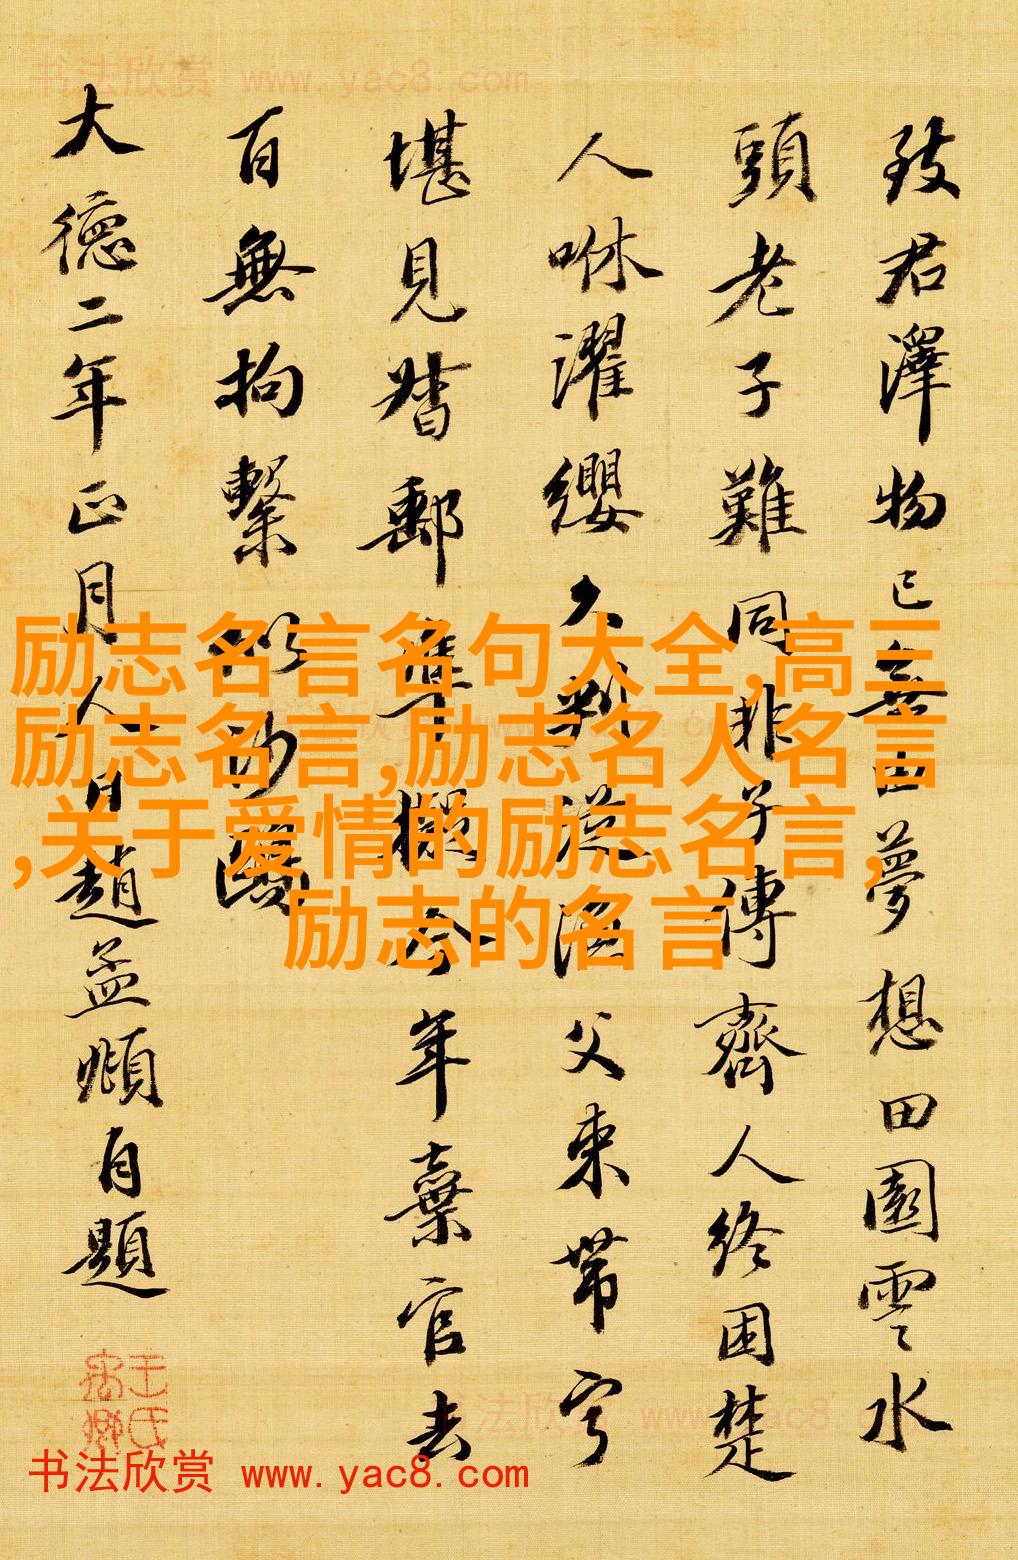 书法欣赏 www.yac8.com
致君澤物已無由夢想田園雲水
頭老子難同非子傳齊人終困楚
人咻濯纓久判從漁父束帶寧
堪見督郵準擬今年棄官去
百無拘繫似沙鷗
大德二年正月人日趙孟頫自題
励志名言名句大全,高三
励志名言,励志名人名言
,关于爱情的励志名言,
励志的名言
书法欣赏 www.yac8.com